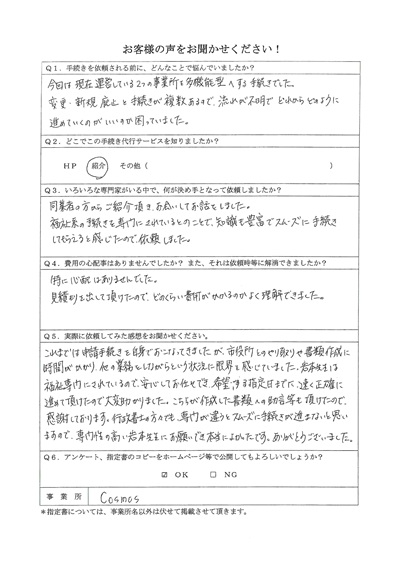 お客様の声をお聞かせください！
Q１．手続きを依頼される前に、どんなことで悩んでいましたか？
今回は現在運営している2つの事業所を多機能型へする手続きでした。
変更・新規・廃止と手続きが複数あるので、流れが不明でどれからどのように
進めていくのがいいのか困っていました。
Q２．どこでこの手続き代行サービスを知りましたか？
ＨＰ　紹介　その他（　　　）
Q３．いろいろな専門家がいる中で、何が決め手となって依頼しましたか？
同業者の方からご紹介頂き、お会いしてお話をしました。
福祉系の手続きを専門にされているとのことで、知識も豊富でスムーズに手続き
してもらえると感じたので依頼しました。
Q４．費用の心配事はありませんでしたか？ また、それは依頼時等に解消できましたか？
特に心配はありませんでした。
見積りを出して頂けたので、どのくらい費用がかかるのかよく理解できました。
Q５．実際に依頼してみた感想をお聞かせください。
これまでは申請手続きを自身でおこなってきましたが、市役所とのやり取りや書類作成に
時間がかかり、他の業務をしながらという状況に限界を感じていました。岩本先生は
福祉専門にされているので、安心してお任せでき、希望する指定日までに、速く正確に
進めて頂けたので大変助かりました。こちらが作成した書類への助言等も頂けたので、
感謝しております。行政書士の方でも、専門が違うとスムーズに手続きが進まないと思い
ますので、専門性の高い岩本先生にお願いでき本当によかったです。ありがとうございました。
Q６．アンケート、指定書のコピーをホームページ等で公開してもよろしいでしょうか？
☑ ＯＫ　□ ＮＧ
事 業 所　Cosmos
＊指定書については、事業所名以外は伏せて掲載させて頂きます。